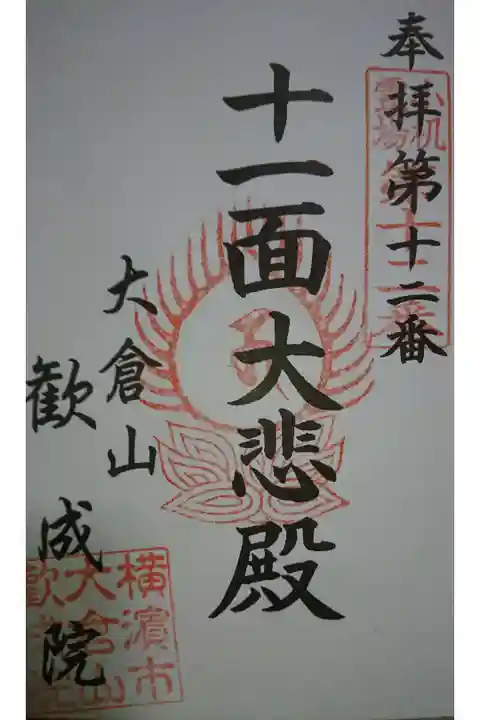 奉拝第十二番
十一面大悲殿
大倉山
歓成院
横濱市
大倉山